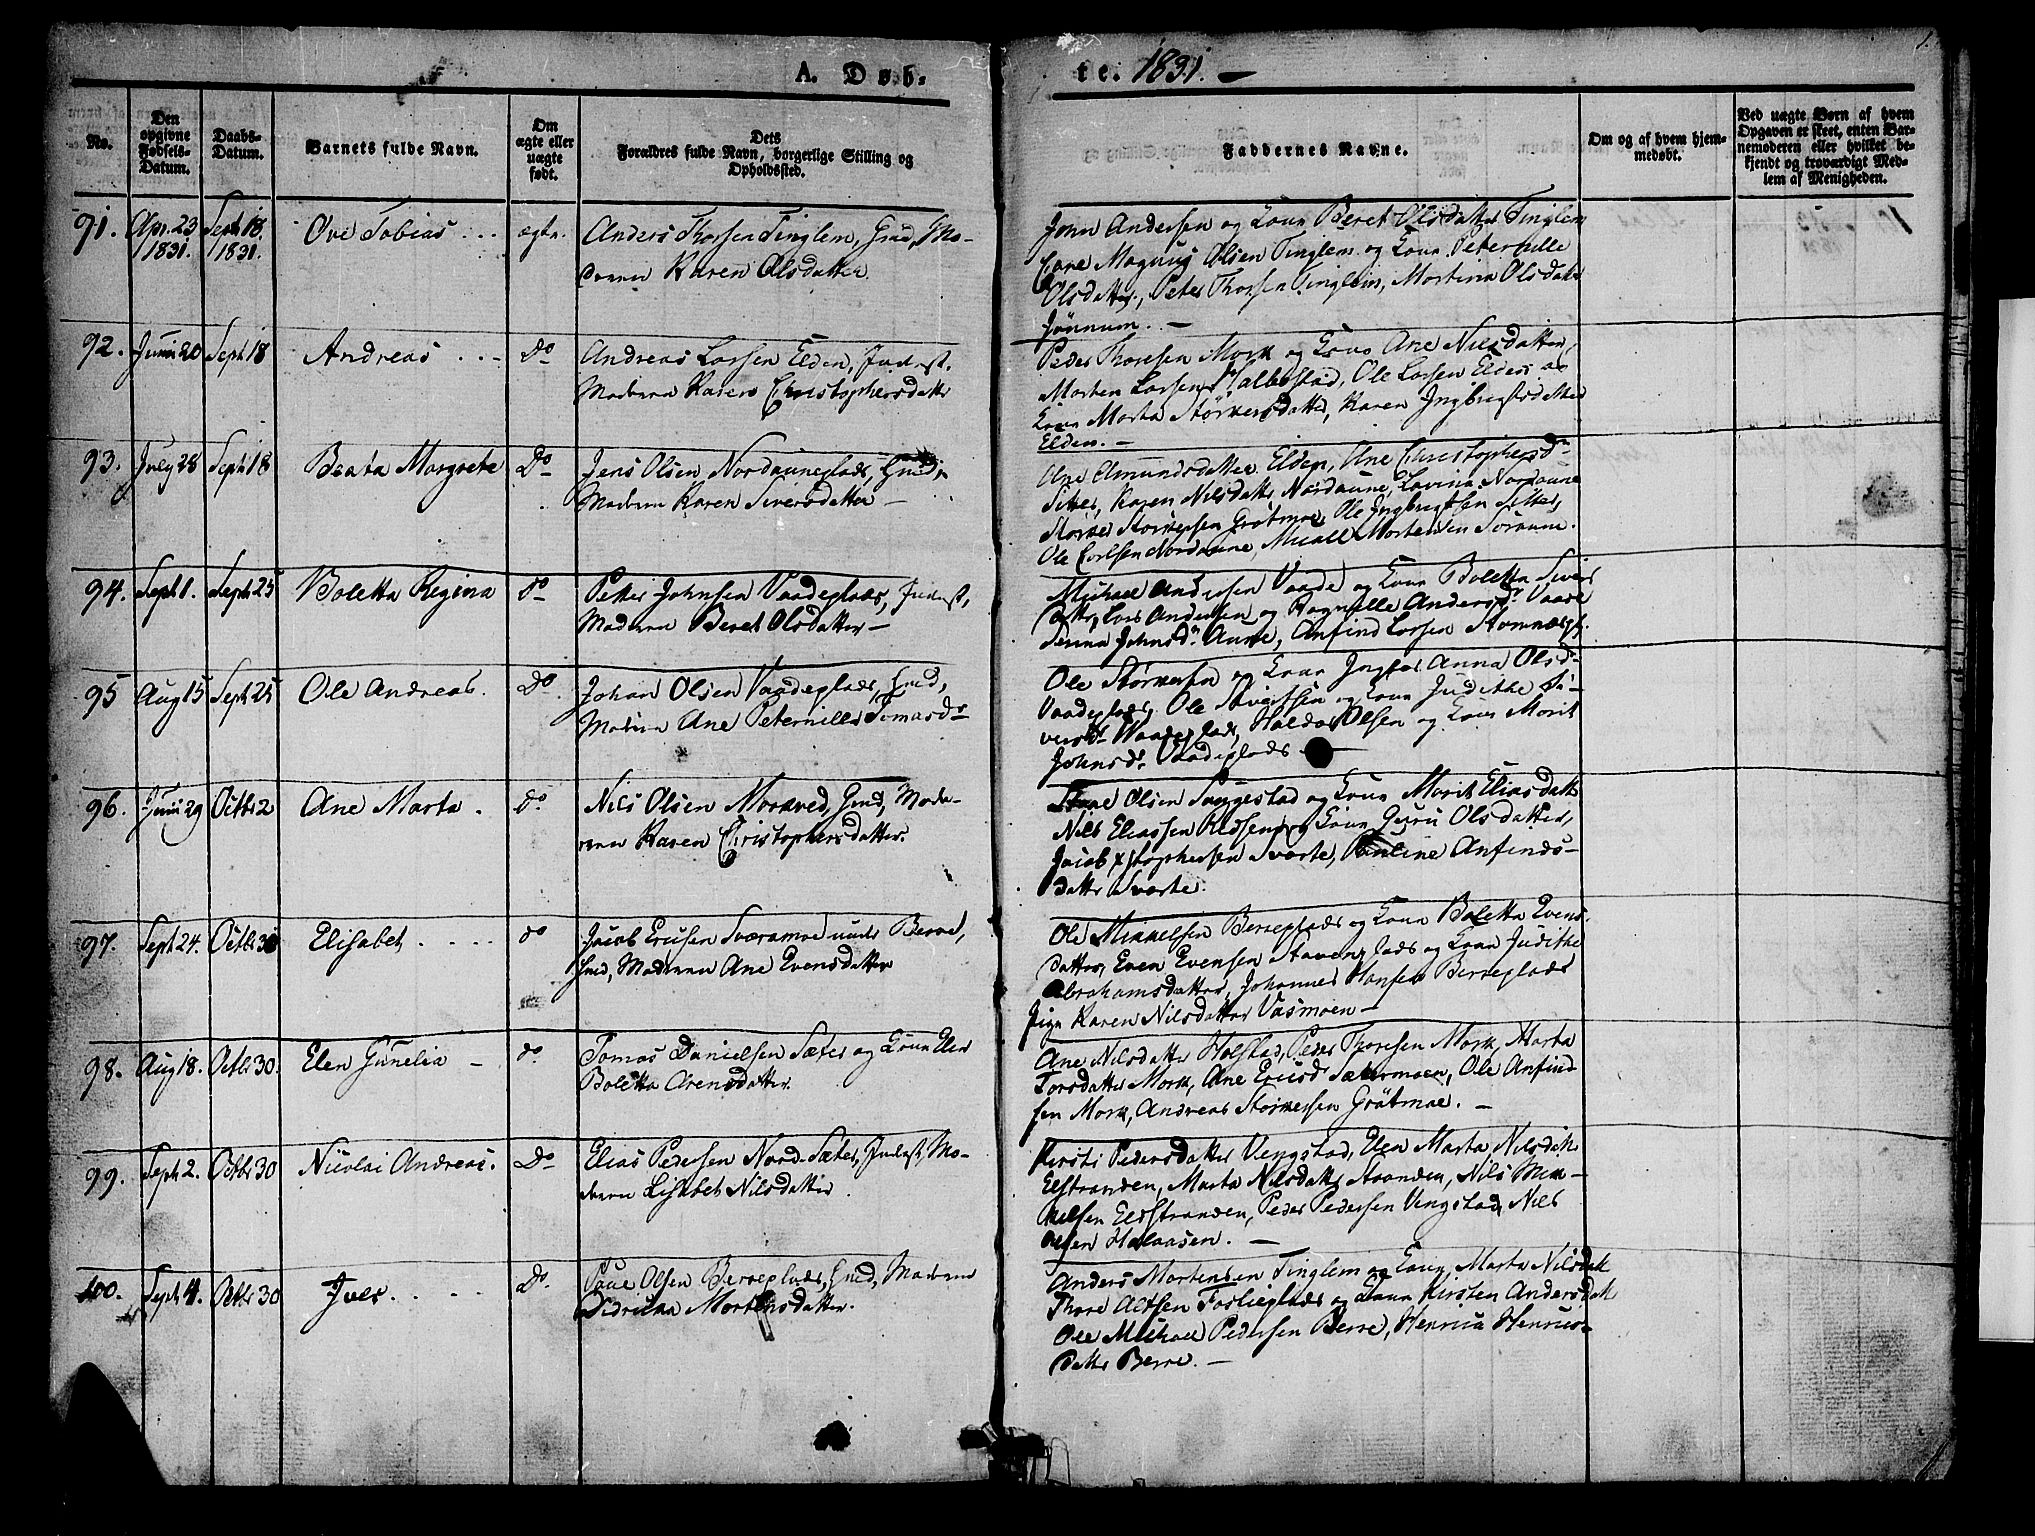 A. Døb-
te. 1831. —
1.
No.
Den opgivne Fødsels-Datum.
Daabs-Datum.
Barnets fulde Navn.
Om ægte eller uægte født.
Dets
Forældres fulde Navn, borgerlige Stilling og
Opholdssted.
Faddernes Navne.
Om og af hvem hjem-
medøbt.
Ved uægte Børn af hvem
Opgaven er skeet, enten Bar-
nemoderen eller hvilket be-
kjendt og troværdigt Med-
lem af Menigheden.
91. Apr. 23 1831. Sept 18 1831. Ove Tobias ægte.
Anders Thorsen Tinglem, Gmd, Mo-
deren Karen Olsdatter
John Andersen og Kone Beret Olsdatter Tinglem
Magnus Olsen Tinglem og Kone Peternille
Olsdatter, Peter Thorsen Tinglem, Martina Olsdatter
Jønnum. —
92. Junii 20 Sept 18 Andreas Do
Andreas Larsen Elden, Inderst,
Moderen Karen Christophersdatter
Peder Thoresen Mork og Kone Ane Nilsdatter,
Morten Larsen, Ole Larsen Elden og
Kone Marta Størkersdatter, Karen Ingbrigtsdatter
Elden. —
93. July 28 Sept 18 Beata Margreta Do
Jens Olsen Nordauneplads, Gmd,
Moderen Karen Siversdatter —
Ane Amundsdatter Elden, Ane Christophersdr
Karen Nilsdatter Nordaune, Lavina Nordaune
Størker Størkersen Grøtmoe, Ole Ingbrigtsen
Ole Carlsen Nordaune, Mortensen
94. Sept 1. Sept 25 Boletta Regina do
Petter Johnsen Vaadeplads, Inderst,
Moderen Beret Olsdatter —
Michael Andersen Vaade og Kone Boletta Sivers
datter, Lars Andersen og Ragnille Andersdr Vaade
Johnsdr Aune, Anfind Larsen
95 Aug 15 Sept 25 Ole Andreas. Do
Johan Olsen Vaadeplads, Gmd,
Moderen Ane Peternille Tomasdr
Ole Størkersen og Kone Anna Olsdr
Vaadeplads, Ole Sivertsen og Kone Judithe Si-
versdr Vaadeplads, Haldor Olsen og Kone Marit
Johnsdr Vaadeplads
96. Junii 29 Octbr 2 Ane Marta. Do
Nils Olsen Moraved, Gmd, Mode-
ren Karen Christophersdatter.
Olsen Saggestad og Kone Marit Eliasdatter
Nils Eliassen og Kone Guru Olsdatter,
Jacob Xstophersen Svarte, Pauline Anfinds-
datter Svarte.
97. Sept 24. Octbr 30 Elisabet do
Jacob Ericsen Sværamoe under Berre,
Gmd, Moderen Ane Evensdatter
Ole Mikkelsen Berreplads og Kone Boletta Evens-
datter, Even Evensen Stavenplads og Kone Judithe
Abrahamsdatter, Johannes Hansen Berreplads
Pige Karen Nilsdatter Vasmoen —
98. Aug 18. Octbr 30. Elen Gunelia — do
Tomas Danielsen Sæter og Kone Elen
Boletta Arensdatter.
Ane Nilsdatter Holstad, Peder Thoresen Mork, Marta
Torsdatter Mork, Ane Ericsd Sætermoen, Ole Anfind
sen Mork, Andreas Størkersen Grøtmoe. —
99. Sept 2. Octbr 30 Nicolai Andreas. Do
Elias Pedersen Nord-Sæter, Inderst, Mo-
deren Lisabet Nilsdatter.
Kirsti Pedersdatter Vengstad, Elen Marta Nilsdatter
Elstranden, Marta Nilsdatter Stranden, Nils Mik-
kelsen Eldstranden, Peder Pedersen Vengstad, Nils
Olsen Halaasen. —
100. Sept 4. Octbr 30 Iver Do.
Paul Olsen Berreplads, Gmd, Moderen
Didrikke Mortensdatter.
Anders Mortensen Tinglem og Kone Marta Nilsdatter
Thore Fosslieplads og Kone Kirsten Andersdatter
Ole Michael Pedersen Berre, Henrica Henrics-
datter Berre. —